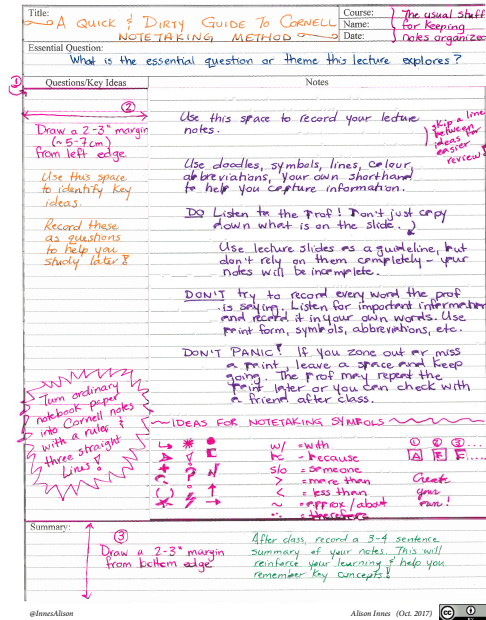 Title:
A QUICK & DIRTY GUIDE TO CORNELL
NOTETAKING METHOD
Course:
Name:
Date:
The usual stuff
for keeping
notes organized
Essential Question:
What is the essential question or theme this lecture explores?
①
Questions/Key Ideas
Notes
②
Draw a 2-3" margin
(~5-7cm)
from left edge
Use this space
to identify key
ideas.
Record these
as questions
to help you
study later!
Turn ordinary
notebook paper
into Cornell notes
with a ruler &
three straight
lines!
Use this space to record your lecture
notes.
skip a line
between
ideas for
easier
review!
Use doodles, symbols, lines, colour,
abbreviations, your own shorthand
to help you capture information.
DO Listen to the Prof! Don't just copy
down what is on the slide.
Use lecture slides as a guideline, but
don't rely on them completely - your
notes will be incomplete.
DON'T try to record every word the prof
is saying. Listen for important information
and record it in your own words. Use
point form, symbols, abbreviations, etc.
DON'T PANIC! If you zone out or miss
a point, leave a space and keep
going. The prof may repeat the
point later or you can check with
a friend after class.
IDEAS FOR NOTETAKING SYMBOLS
w/ = with
bc = because
s/o = someone
> = more than
< = less than
~ = approx/about
∴ = therefore
① ② ③ ....
Create
your
own!
Summary:
③
Draw a 2-3" margin
from bottom edge
After class, record a 3-4 sentence
summary of your notes. This will
reinforce your learning & help you
remember key concepts!
@InnesAlison
Alison Innes (Oct. 2017)
cc